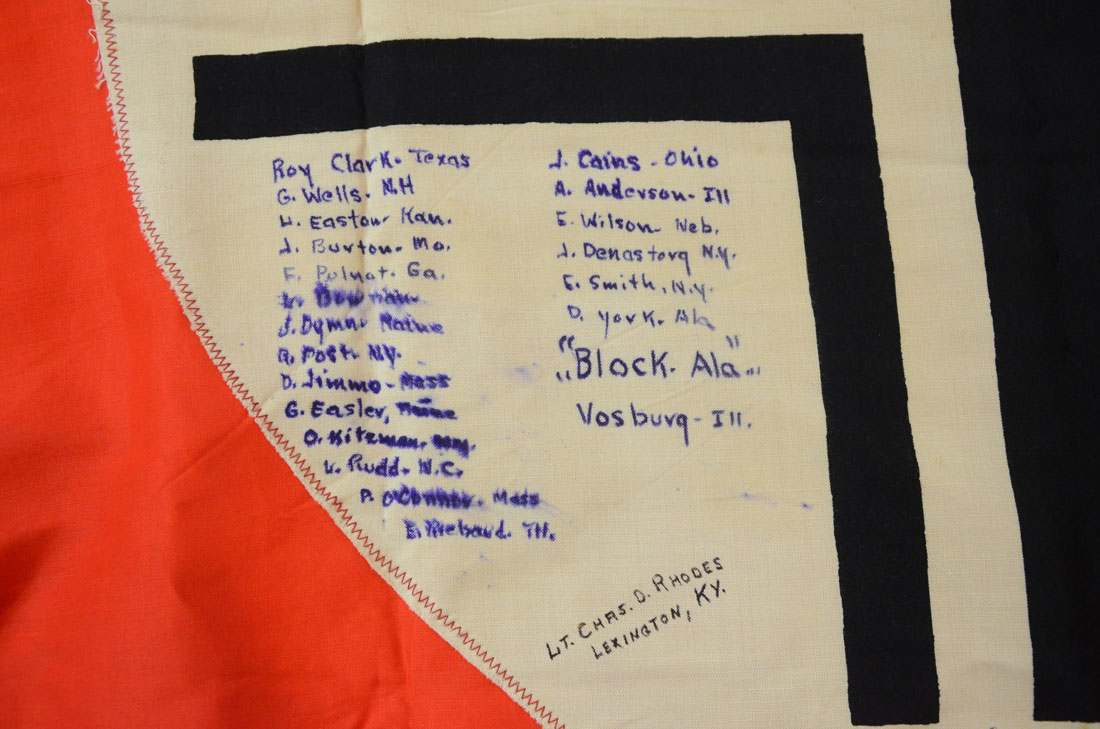 Roy Clark. Texas
G. Wells. N.H
H. Easton. Kan.
J. Burton. Mo.
F. Ga.
L.
J. Dymn. Maine
R. Post. N.Y.
D. Jimmo - Mass
G. Easler, Maine
O. Kitzman.
L. Rudd. N.C.
P. O'Connor. Mass
E.
J. Cains - Ohio
A. Anderson - Ill
E. Wilson. Neb.
J. Denastorg N.Y.
E. Smith, N.Y.
D. York. Ala
"Block. Ala"
Vosburg - Ill.
LT. CHAS. D. RHODES
LEXINGTON, KY.